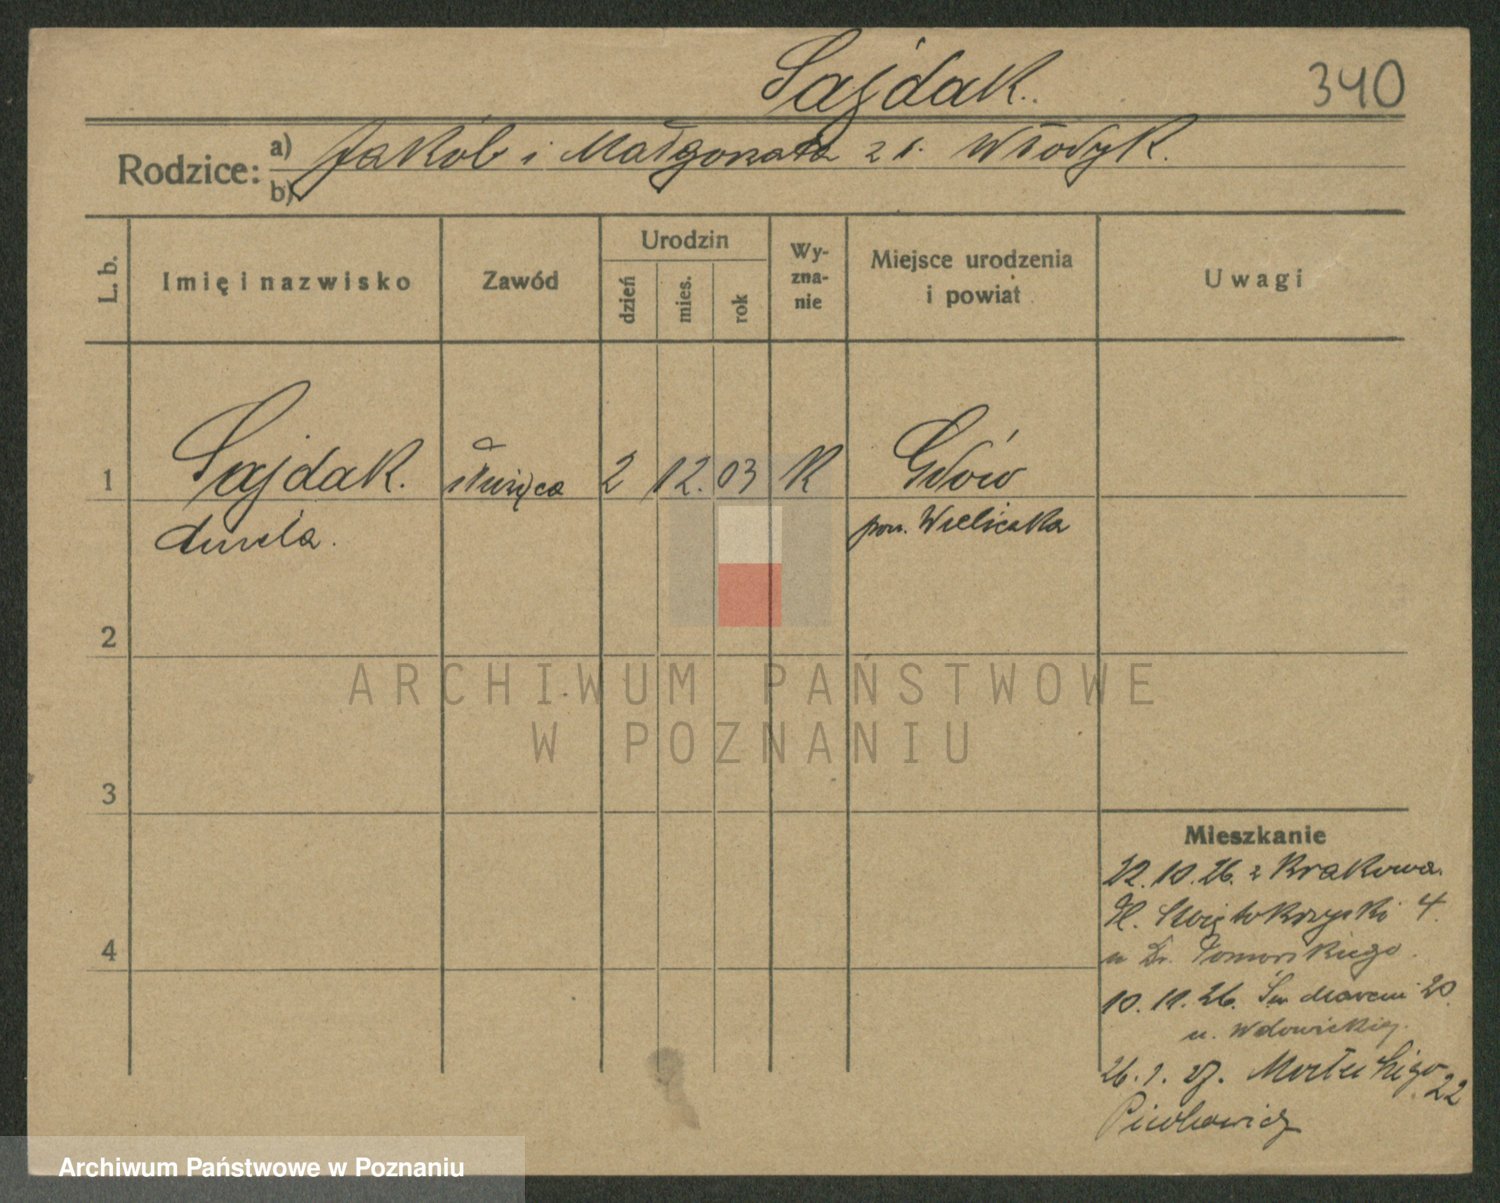 Sajdak.
340
Rodzice:
a) Jakób i Małgorzata z d. Włodyk.
b)
L. b.
Imię i nazwisko
Zawód
Urodzin
dzień
mies.
rok
Wy-
zna-
nie
Miejsce urodzenia
i powiat
Uwagi
1
Sajdak.
służąca
2
12.
03
K
Gdów
pow. Wieliczka
2
ARCHIWUM PAŃSTWOWE
W POZNANIU
3
Mieszkanie
22.10.26. z Krakowa.
Pl. Świętokrzyski 4.
u Dr. Pomorskiego.
4
10.11.26. Św. Marcin 20
u. Wdowickiej.
26.1.27. 22
Archiwum Państwowe w Poznaniu